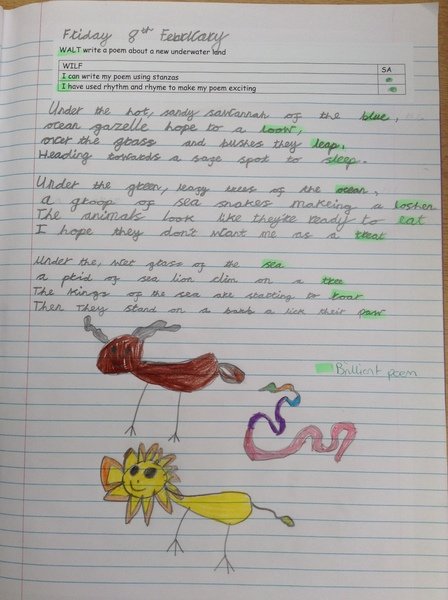 Friday 8th February
WALT write a poem about a new underwater land
WILF SA
I can write my poem using stanzas
I have used rhythm and rhyme to make my poem exciting
Under the hot, sandy savannah of the blue,
ocean gazelle hope to a
over the grass and bushes they leap,
Heading towards a safe spot to sleep.
Under the green, leafy trees of the ocean,
a groop of sea snakes making a
The animals look like they're ready to eat
I hope they don't want me as a treat
Under the, wet grass of the sea
a prid of sea lion clim on a tree
The Kings of the sea are starting to roar
Then They stand on a a lick their paw
Brilliant poem